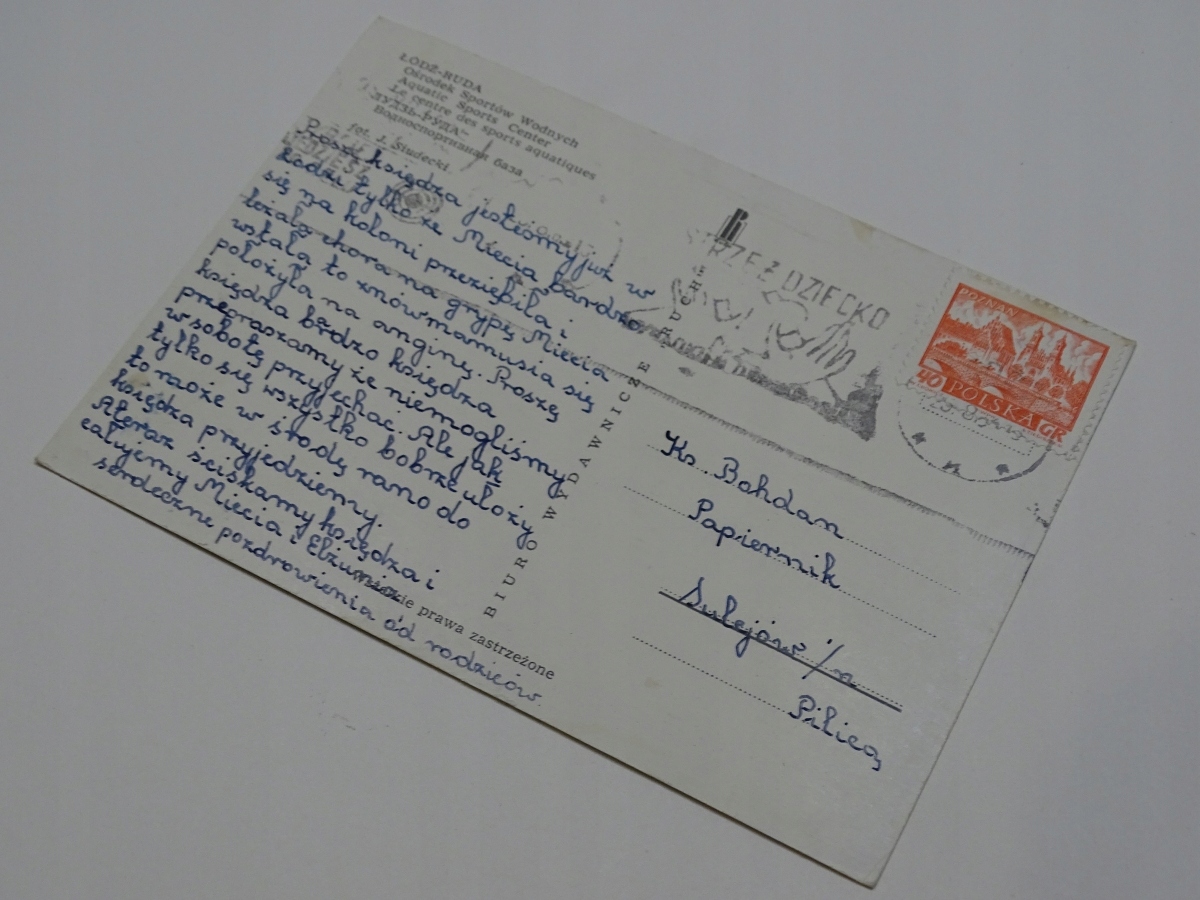 ŁÓDŹ-RUDA
Ośrodek Sportów Wodnych
Aquatic Sports Center
Le centre des sports aquatiques
ЛУДЗЬ-РУДА
Водноспортивная база
fot. J. Siudecki
Proszę księdza jesteśmy już w
Łodzi tylko że Miecia bardzo
się na koloni przeziębiła i
leżała chora na grypę Miecia
wstała to znów mamusia się
położyła na anginę. Proszę
księdza bardzo księdza
przepraszamy że niemogliśmy
w sobotę przyjechać. Ale jak
tylko się wszystko dobrze ułoży
to może w środę rano do
księdza przyjedziemy.
A teraz ściskamy księdza i
całujemy Miecia i Elżunia
serdeczne pozdrowienia od rodziców.
Wszelkie prawa zastrzeżone
BIURO WYDAWNICZE RUCH
STRZEŻ DZIECKO
POZNAŃ
40 POLSKA GR
Ks. Bohdan
Papiernik
Sulejów /n
Pilicą